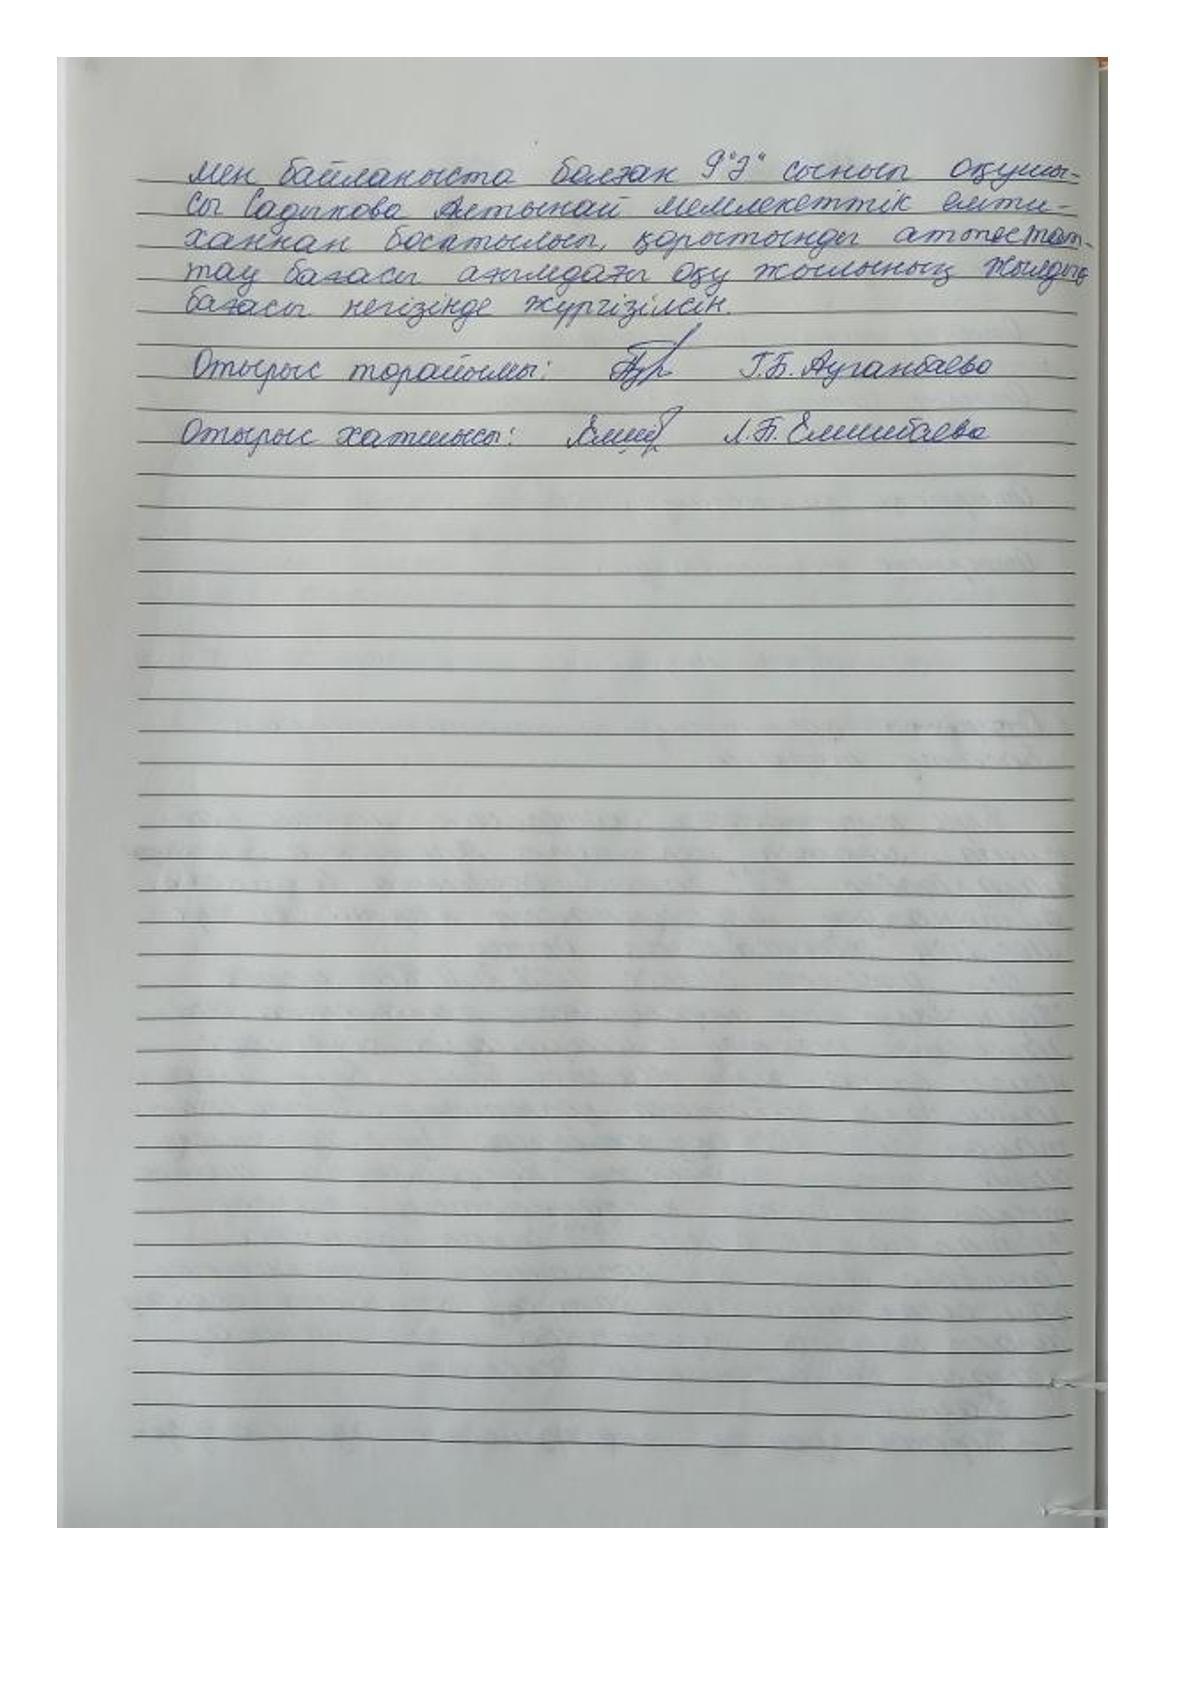 мен байланыста болған 9"Ә" сынып оқушы-
сы Садыкова Алтынай мемлекеттік емти-
ханнан босатылып, қорытынды аттестат-
тау бағасы ағымдағы оқу жылының жылдық
бағасы негізінде жүргізілсін.
Отырыс төрайымы: Г.Б. Ауганбаева
Отырыс хатшысы: Л.Б. Емшибаева